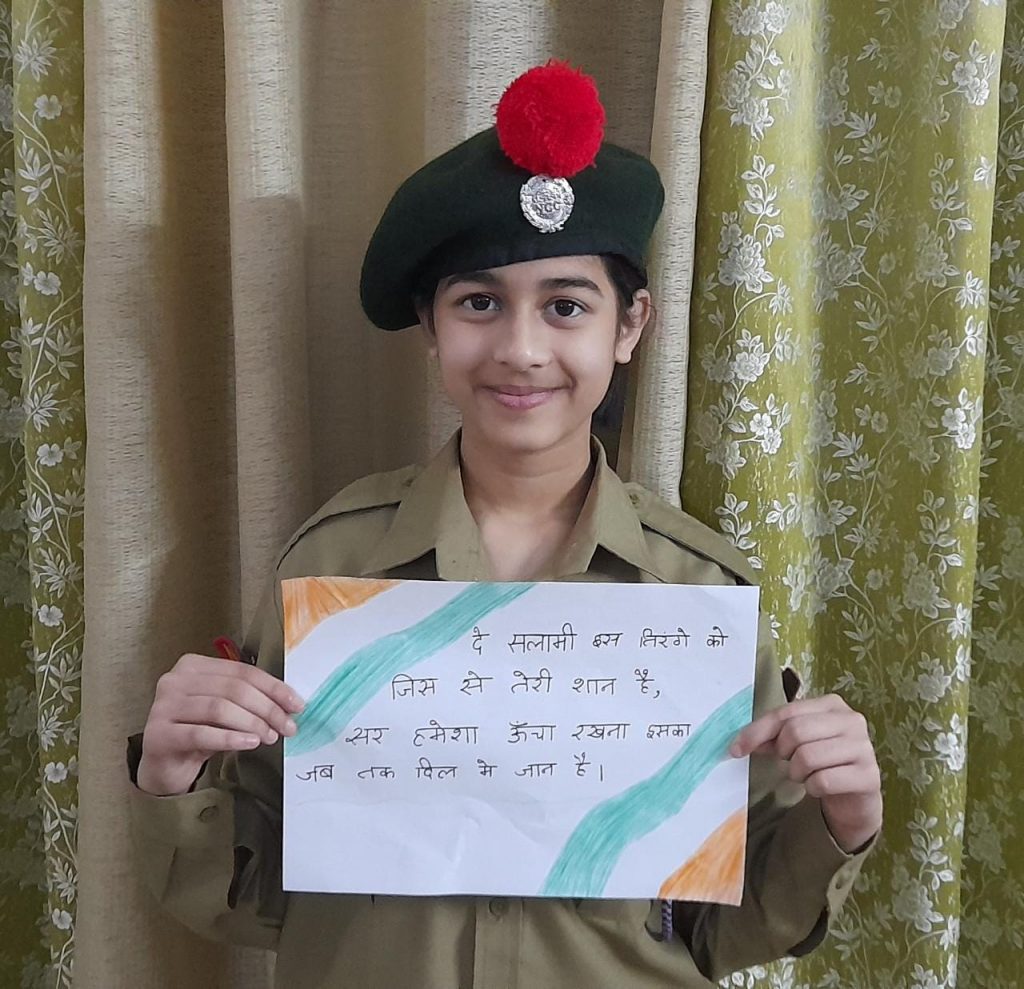 NCC
दे सलामी इस तिरंगे को
जिस से तेरी शान है,
सर हमेशा ऊँचा रखना इसका
जब तक दिल मे जान है।